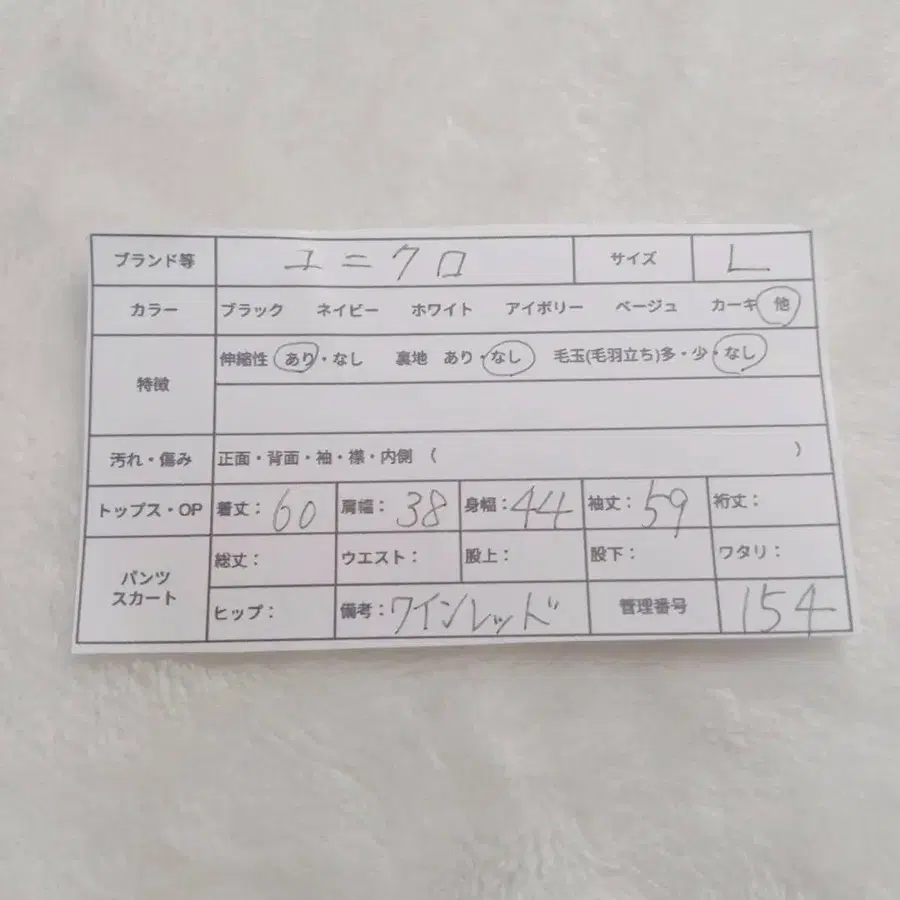 ブランド等 ユニクロ サイズ L
カラー ブラック ネイビー ホワイト アイボリー ベージュ カーキ 他
特徴 伸縮性 あり・なし 裏地 あり・なし 毛玉(毛羽立ち)多・少・なし
汚れ・傷み 正面・背面・袖・襟・内側 ( )
トップス・OP 着丈:60 肩幅:38 身幅:44 袖丈:59 裄丈:
パンツ スカート 総丈: ウエスト: 股上: 股下: ワタリ:
ヒップ: 備考:ワインレッド 管理番号 154